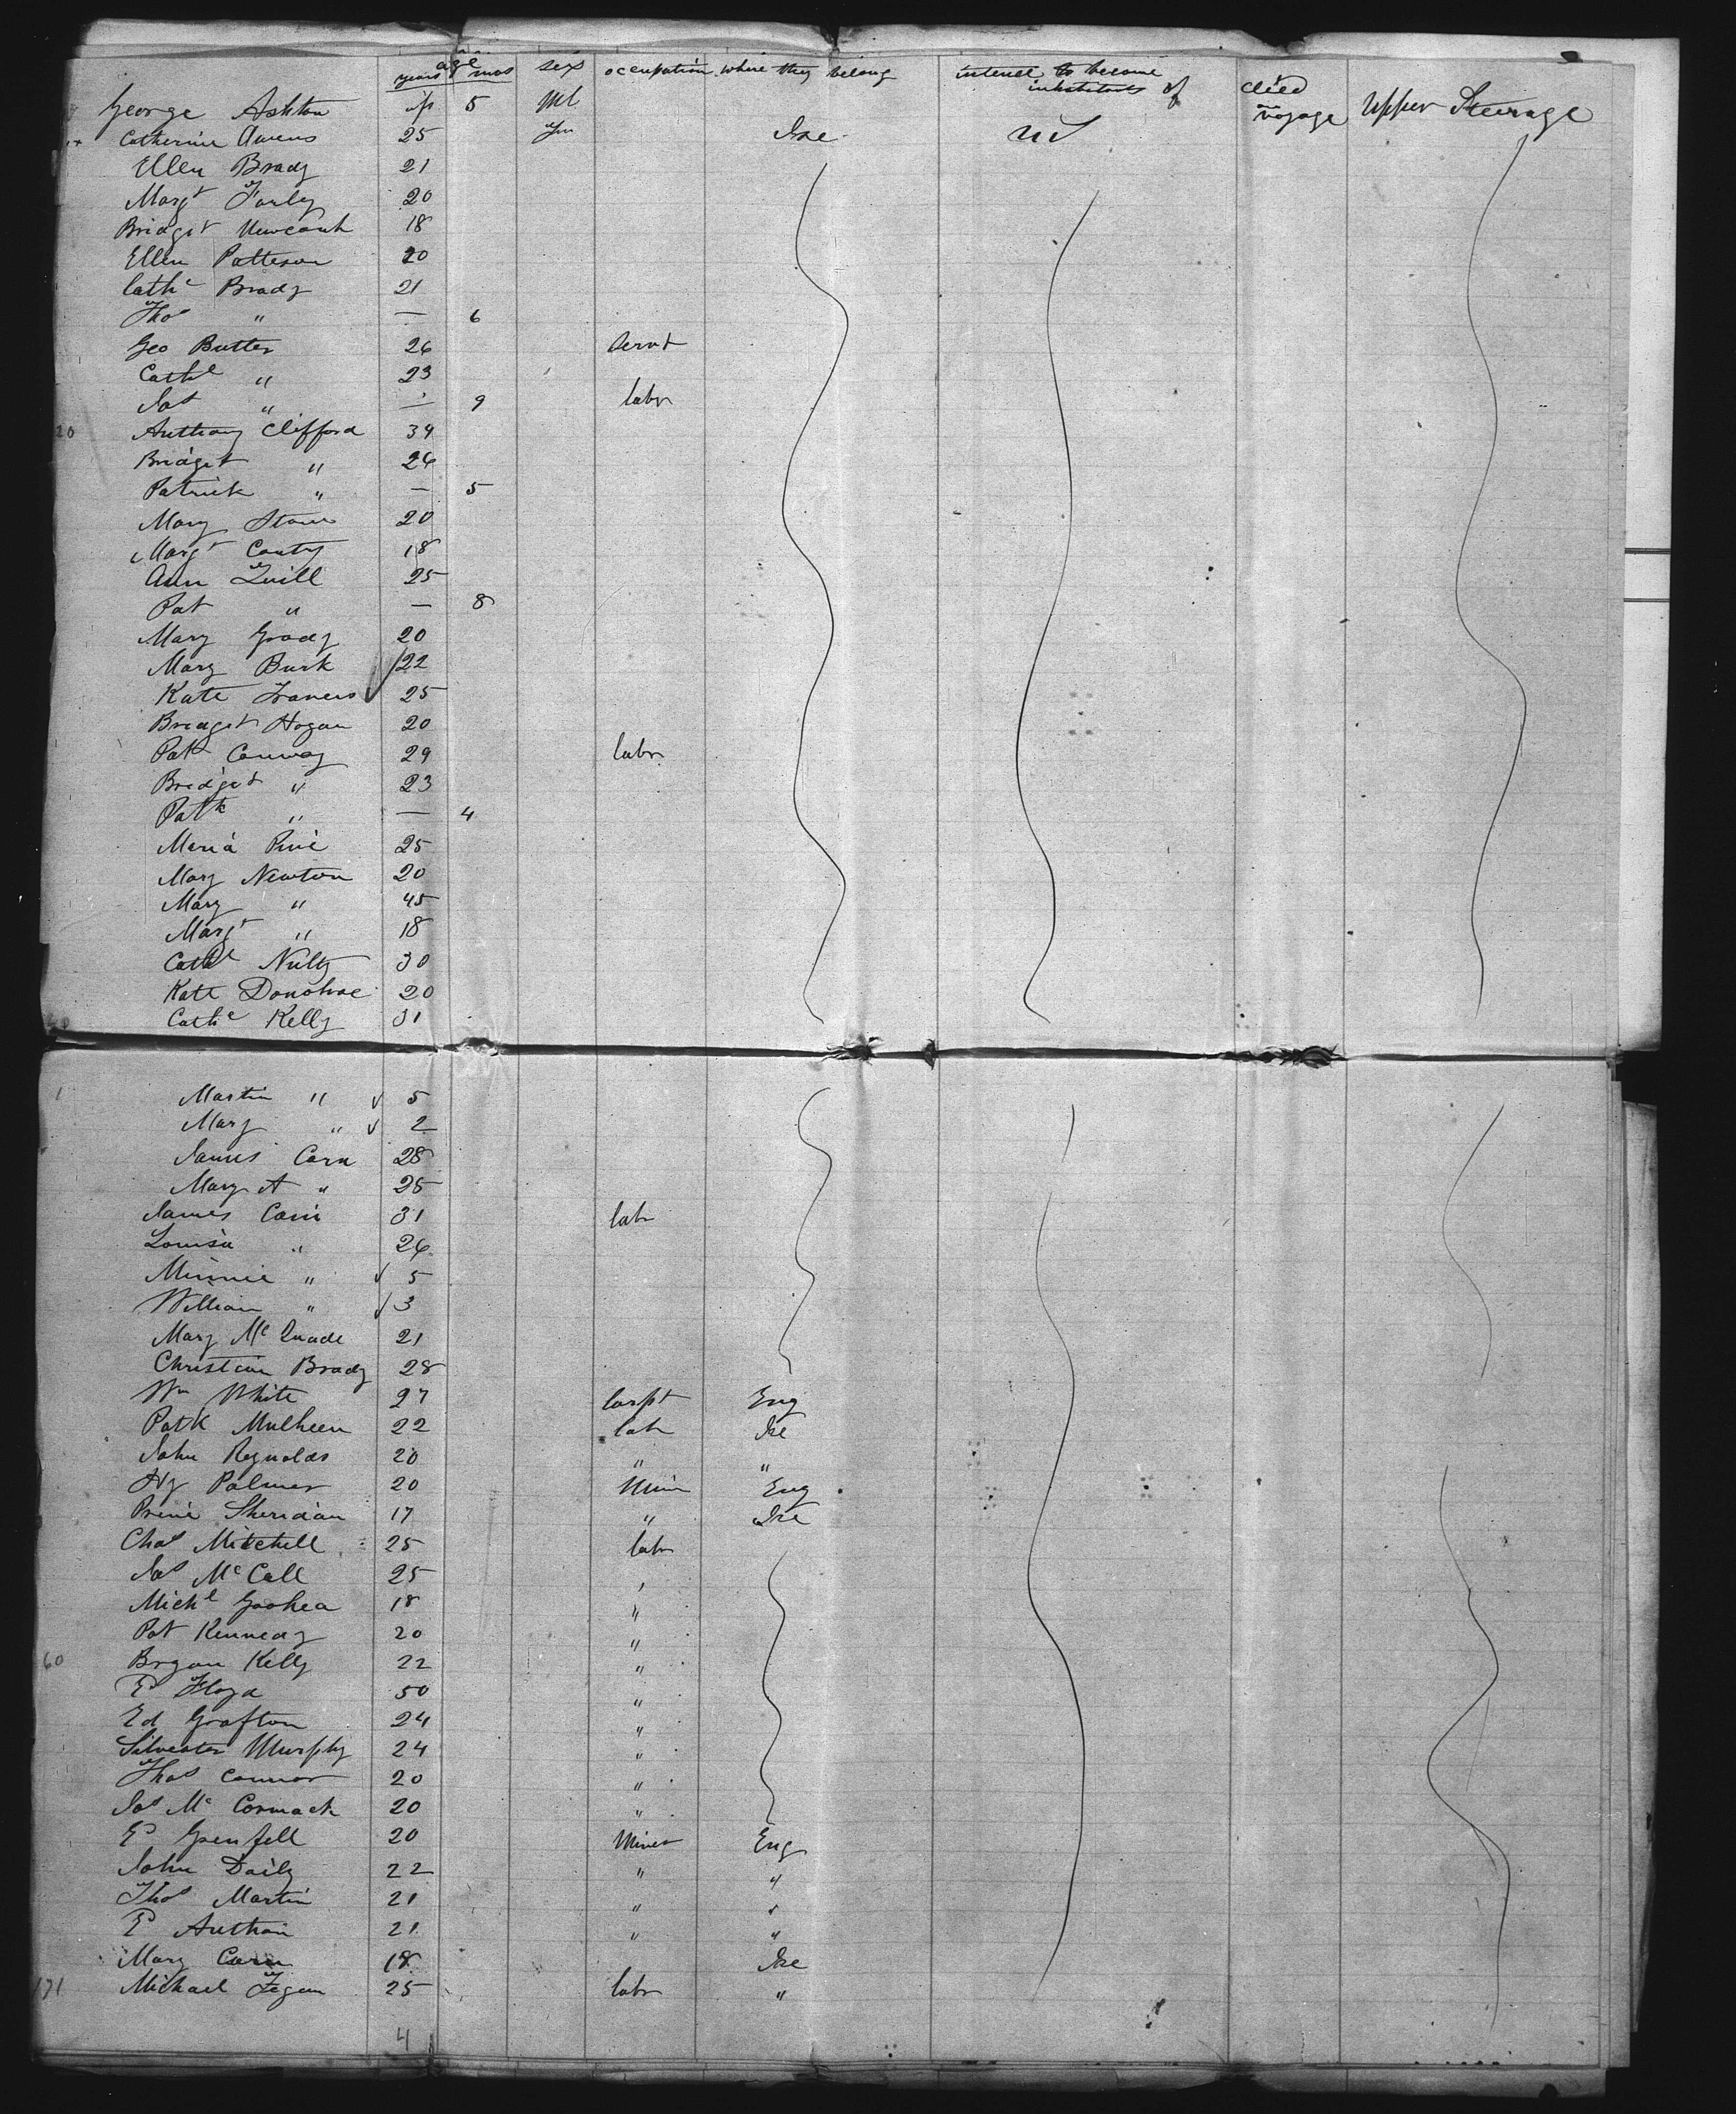 age
years mos sex occupation where they belong intend to become inhabitants of died voyage Upper Steerage
George Ashton 5 Ml
Catherine Owens 25 Fm Ire US
Ellen Brady 21
Margt Farley 20
Bridget 18
Ellen Patteson 20
Cathe Brady 21
Thos " — 6
Geo Butter 26 Servt
Cathe " 23
Jas " — 9 labr
20 Anthony Clifford 34
Bridget " 26
Patrick " — 5
Mary Stone 20
Margt Canty 18
Ann Quill 25
Pat " — 8
Mary Grady 20
Mary Burk 22
Kate Travers 25
Bridget Hogan 20
Patk Conway 29 labr
Bridget " 23
Patk " — 4
Maria 25
Mary Newton 20
Mary " 45
Margt " 18
Cathe Nulty 30
Kate Donohoe 20
Cathe Kelly 31
1 Martin " 5
Mary " 2
James Carn 28
Mary A " 25
James Cain 31 labr
Louisa " 26
Minnie " 5
William " 3
Mary Mc Quade 21
Christian Brady 28
Wm White 27 Carpt Eng
Patk Mulheen 22 labr Ire
John Reynolds 20 " "
Hy Palmer 20 Min Eng
Sheridan 17 " Ire
Chas Mitchell 25 labr
Jas McCall 25 "
Michl 18 "
Pat Kennedy 20 "
60 Bryan Kelly 22 "
E Floyd 50 "
Ed Grafton 24 "
Silvester Murphy 24 "
Thos Connor 20 "
Jas Mc Cormack 20 "
E Grenfell 20 Miner Eng
John Daily 22 " "
Thos Martin 21 " "
E 21 " "
Mary Carn 18 Ire
171 Michael Fegan 25 labr "
4